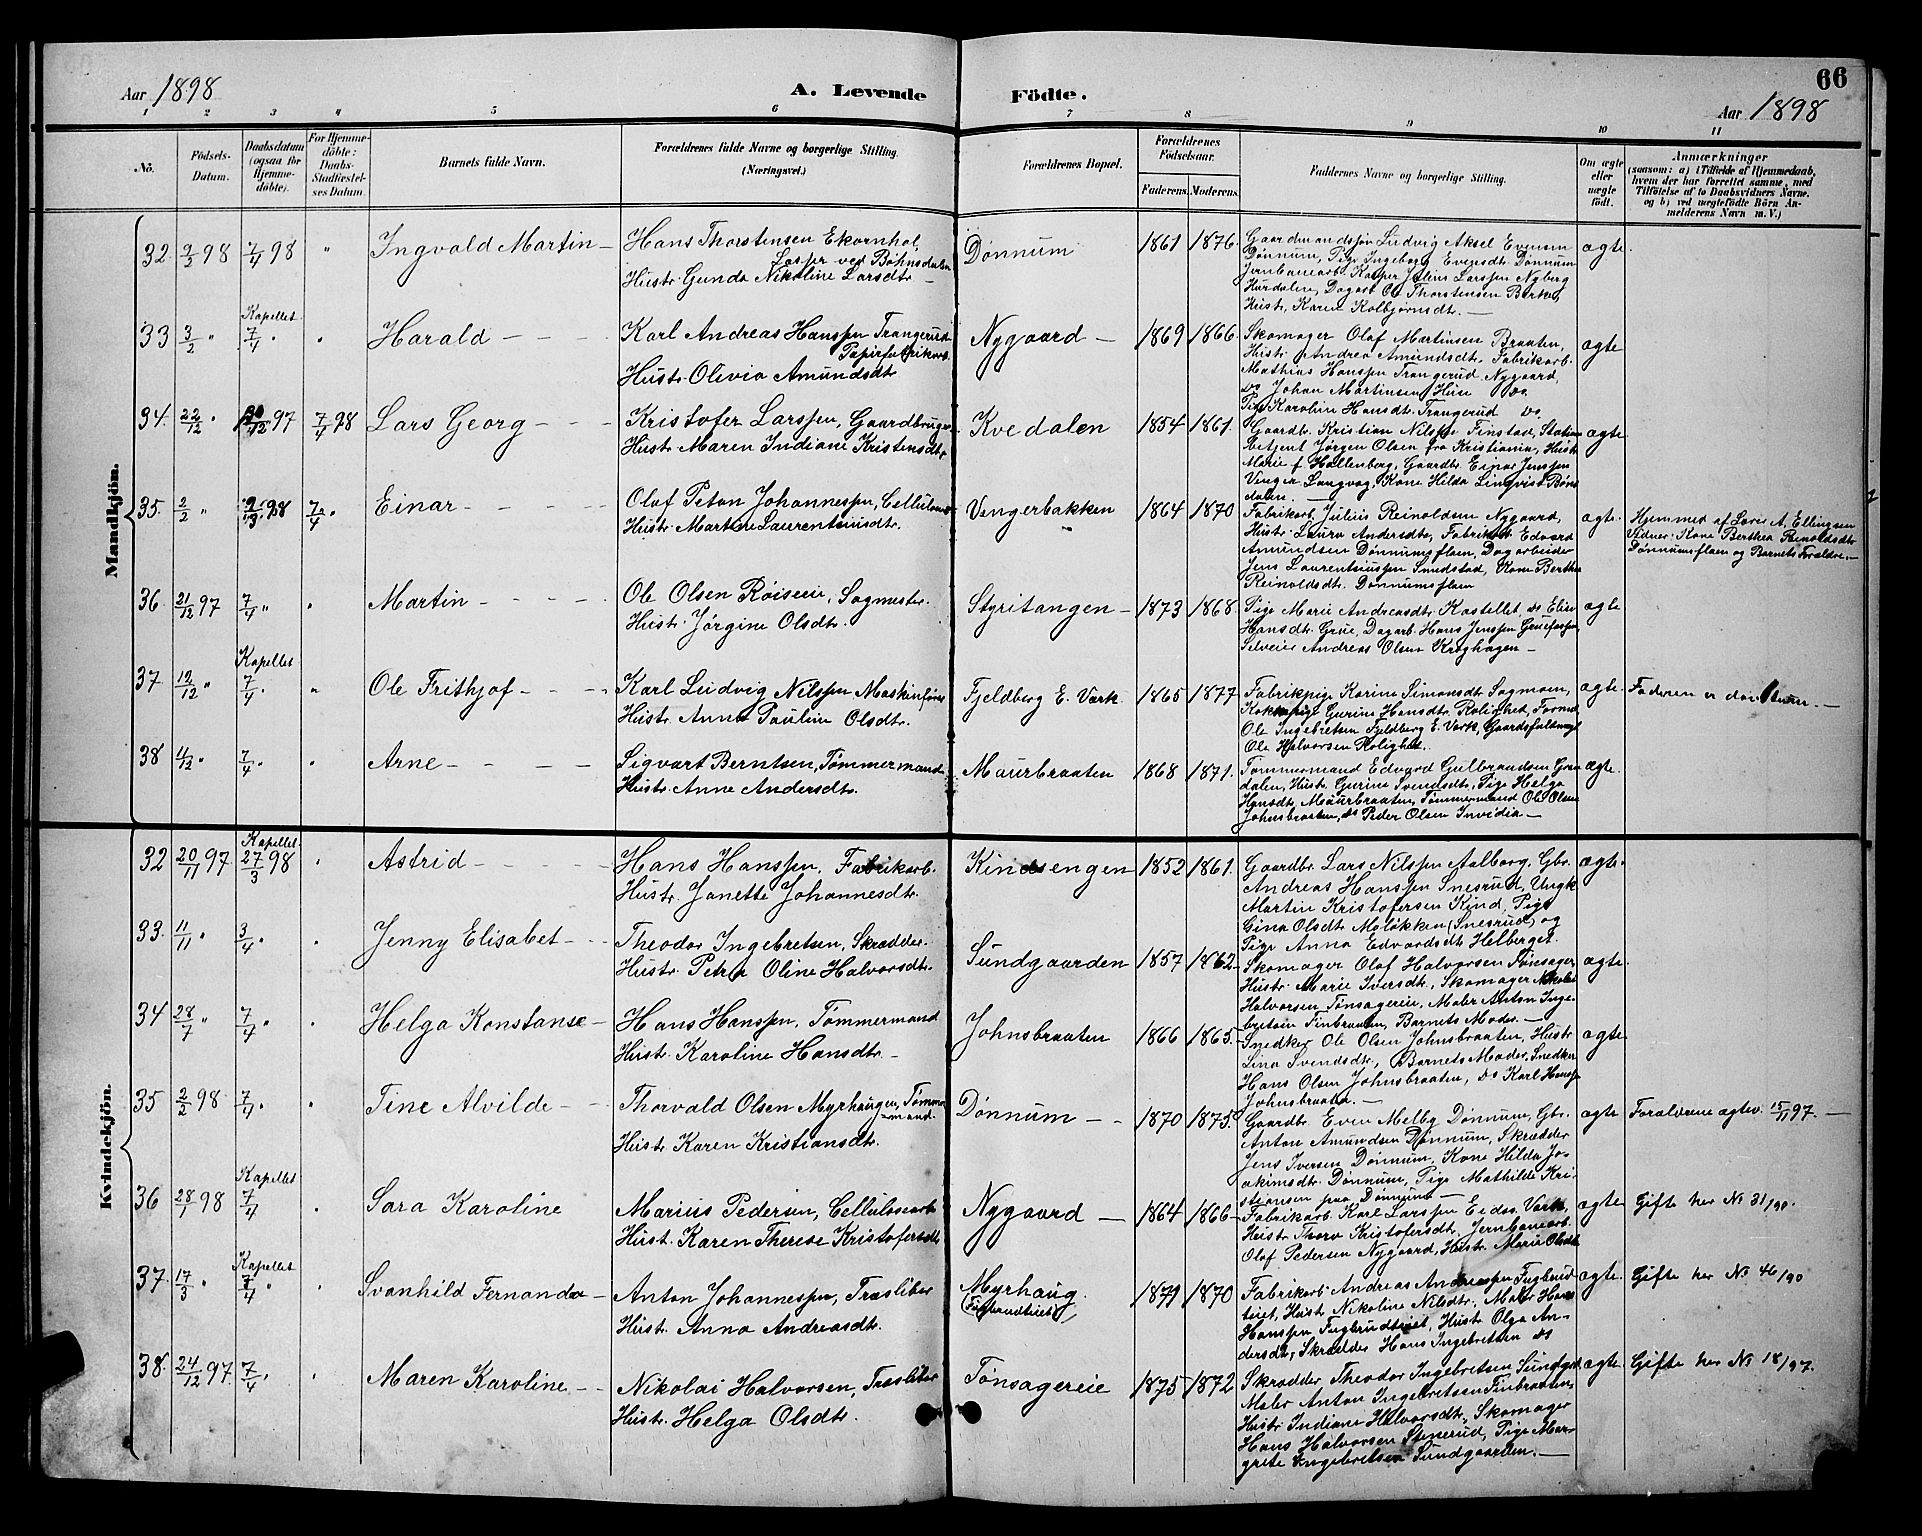 66
Aar 1898
A. Levende Födte.
Aar 1898
1 2 3 4 5 6 7 8 9 10 11
No.
Födsels-Datum.
Daabsdatum (ogsaa for Hjemmedöbte).
For Hjemmedöbte: Daabs-Stadfæstelses Datum.
Barnets fulde Navn.
Forældrenes fulde Navne og borgerlige Stilling.
(Næringsvei.)
Forældrenes Bopæl.
Forældrenes Födselsaar.
Faderens. Moderens.
Faddernes Navne og borgerlige Stilling.
Om ægte eller uægte født.
Anmærkninger
(saasom: a) i Tilfælde af Hjemmedaab,
hvem der har forrettet samme, med
Tilföielse af to Daabsvidners Navne.
og b) ved uægtefödte Börn Anmelderens Navn m. V.)
Mandkjön.
32. 2/2 98 7/4 98 " Ingvald Martin
Hans Thorstensen Ekornhol,
Løsjer ved Bøhnsdalen
Hustr. Gunda Nikoline Larsdtr.
Dønnum 1861 1876.
Gaardmandssøn Ludvig Aksel Evensen
Dønnum, Pige Ingeborg Evensdt. Dønnum
Jernbanearb. Kasper Julius Larssen Nyberg
Hurdalen, Dagarb. Ole Thorstensen Berke,
Hustr. Karen Kolbjørnsdt.
ægte.
33 3/2 " Kapellet 7/4 " " Harald
Karl Andreas Hanssen Trangerud
Papirfabrikarb.
Hustr. Olivia Amundsdtr.
Nygaard 1869 1866.
Skomager Olaf Martinsen Braaten,
Hustr. Andrea Amundsdt. Fabrikarb.
Mathias Hanssen Trangerud Nygaard,
do Johan Martinsen do
Pige Karoline Hansdt. Trangerud do
ægte
34. 22/12 " 97 7/4 98 Lars Georg
Kristofer Larssen, Gaardbruger
Hustr. Maren Indiane Kristensdtr.
Kvedalen 1854 1861.
Gaardbr. Kristian Nilssen Finstad, Station
betjent Jørgen Olsen fra Kristiania, Hustr.
Marie f. Hallenberg, Gaardbr. Einar Jenssen
Venger Langvag, Kone Hilda Linqvist
dalen.
ægte
35. 2/2 " 98 7/4 " Einar
Olaf Johannessen, Cellulose
Hustr. Marthe Laurentsiusdtr.
Vengerbakken 1864 1870
Fabrikarb. Julius Reinoldsen Nygaard,
Hustr. Laura Andersdtr, Fabrikarb. Edvard
Amundsen Dønnumsflaen, Dagarbeider
Jens Laurentsiussen Smedstad, Kone Berthe
Reinoldsdt. Dønnumsflaen
ægte.
Hjemmed. af A. Ellingsen
Vidner: Kone Berthea Reinoldsdtr.
Dønnumsflaen og Barnets Forældre.
36. 21/12 97 7/4 " " Martin
Ole Olsen Røiseie, Sagmester.
Hustr. Jørgine Olsdtr.
Styritangen 1873 1868.
Pige Marie Andreasdt. Kastellet, do Elise
Hansdt. Grue, Dagarb. Hans Jenssen
Andreas Olsen Kroghagen
ægte
37. 12/12 " Kapellet 7/4 " Ole Frithjof
Karl Ludvig Nilssen Maskinfører
Hustr. Anna Pauline Olsdtr.
Fjeldberg E. Værk 1865 1877
Fabrikpige Karine Simonsdt. Sagmoen,
Kokkepige Gurine Hansdt. Rolighed, Formd.
Ole Ingebretsen Fjeldberg E. Værk, Gaardsfuldmægt.
Ole Halvorsen Rolighed.
ægte.
Faderen er
38 11/12 " 7/4 " Arne
Sigvart Berntsen, Tømmermand
Hustr. Anne Andersdtr.
Maurbraaten 1868 1871.
Tømmermand Edvard Gulbrandsen
dalen, Hustr. Gurine Svendsdtr, Pige Helga
Hansdt. Maurbraaten, Tømmermand Ole Olsen
Johnsbraaten, do Peder Olsen Invidia
ægte.
Kvindekjön.
32 20/11 97 Kapellet 27/3 98 " Astrid
Hans Hanssen, Fabrikarb.
Hustr. Janette Johannesdtr.
Kindsengen 1852 1861.
Gaardbr. Lars Nilssen Aalborg, Gbr.
Andreas Hanssen Snesrud, Ungk.
Martin Kristofersen Kind, Pige
Gina Olsdt. Meløkken (Snesrud) og
Pige Anna Edvardsdt. Helberget.
ægte.
33. 11/11 " 3/4 " Jenny Elisabet
Theodor Ingebretsen, Skrædder.
Hustr. Petra Oline Halvorsdtr.
Sundgaarden 1857 1862.
Skomager Olaf Halvorsen Tønsager,
Hustr. Marie Iversdt., Skomager Nikolai
Halvorsen Tønsagereie, Maler Anton Ingebretsen
Finbraaten, Barnets Moder.
ægte.
34 28/7 " 7/4 " Helga Konstanse
Hans Hanssen, Tømmermand
Hustr. Karoline Hansdtr.
Johnsbraaten 1866 1865.
Snedker Ole Olsen Johnsbraaten, Hustr.
Lina Svendsdtr., Barnets Moder, Snedker
Hans Olsen Johnsbraaten, do Karl Hanssen
Johnsbraaten.
ægte.
35 2/2 98. 7/4 " Tine Alvilde
Thorvald Olsen Myrhaugen, Tømmermand.
Hustr. Karen Kristiansdtr.
Dønnum 1870 1875.
Gaardbr. Even Melby Dønnum, Gbr.
Anton Amundsen Dønnum, Skrædder
Jens Iversen Dønnum, Kone Hilda Joakimsdt.
Dønnum, Pige Mathilde Kristiansen
paa Dønnum
ægte
Forældrene ægtev. 15/11 97.
36 28/1 98 Kapellet 7/4 Sara Karoline
Marius Pedersen, Cellulosearb.
Hustr. Karen Therese Kristofersdtr
Nygaard 1864 1866
Fabrikarb. Karl Larssen Eids. Værk,
Hustr. Thora Kristofersdt, Jernbanearb.
Olaf Pedersen Nygaard, Hustr. Marie Olsdt.
ægte
Gifte her No 31/90.
37. 17/3 " Kapellet 7/4 " Svanhild Fernanda
Anton Johannessen, Træsliber
Hustr. Anna Andreasdtr.
Myrhaug. 1879 1870
Fabrikarb. Andreas Andreassen Fuglerud
eiet, Hustr. Nikoline Nilsdtr. Maler Hans
Hanssen, Hustr. Olga Andersdt,
Skrædder Hans Ingebretsen do
ægte.
Gifte her No 46/90
38. 24/12 97. 7/4 " Maren Karoline
Nikolai Halvorsen, Træsliber
Hustr. Helga Olsdtr.
Tønsagereie 1875 1872
Skrædder Theodor Ingebretsen Sundgd.
Maler Anton Ingebretsen Finbraaten,
Hustr. Indiane Halvorsdtr., Skomager
Hans Halvorsen, Pige Margrete
Ingebretsen Sundgaarden.
ægte.
Gifte her No 18/97.